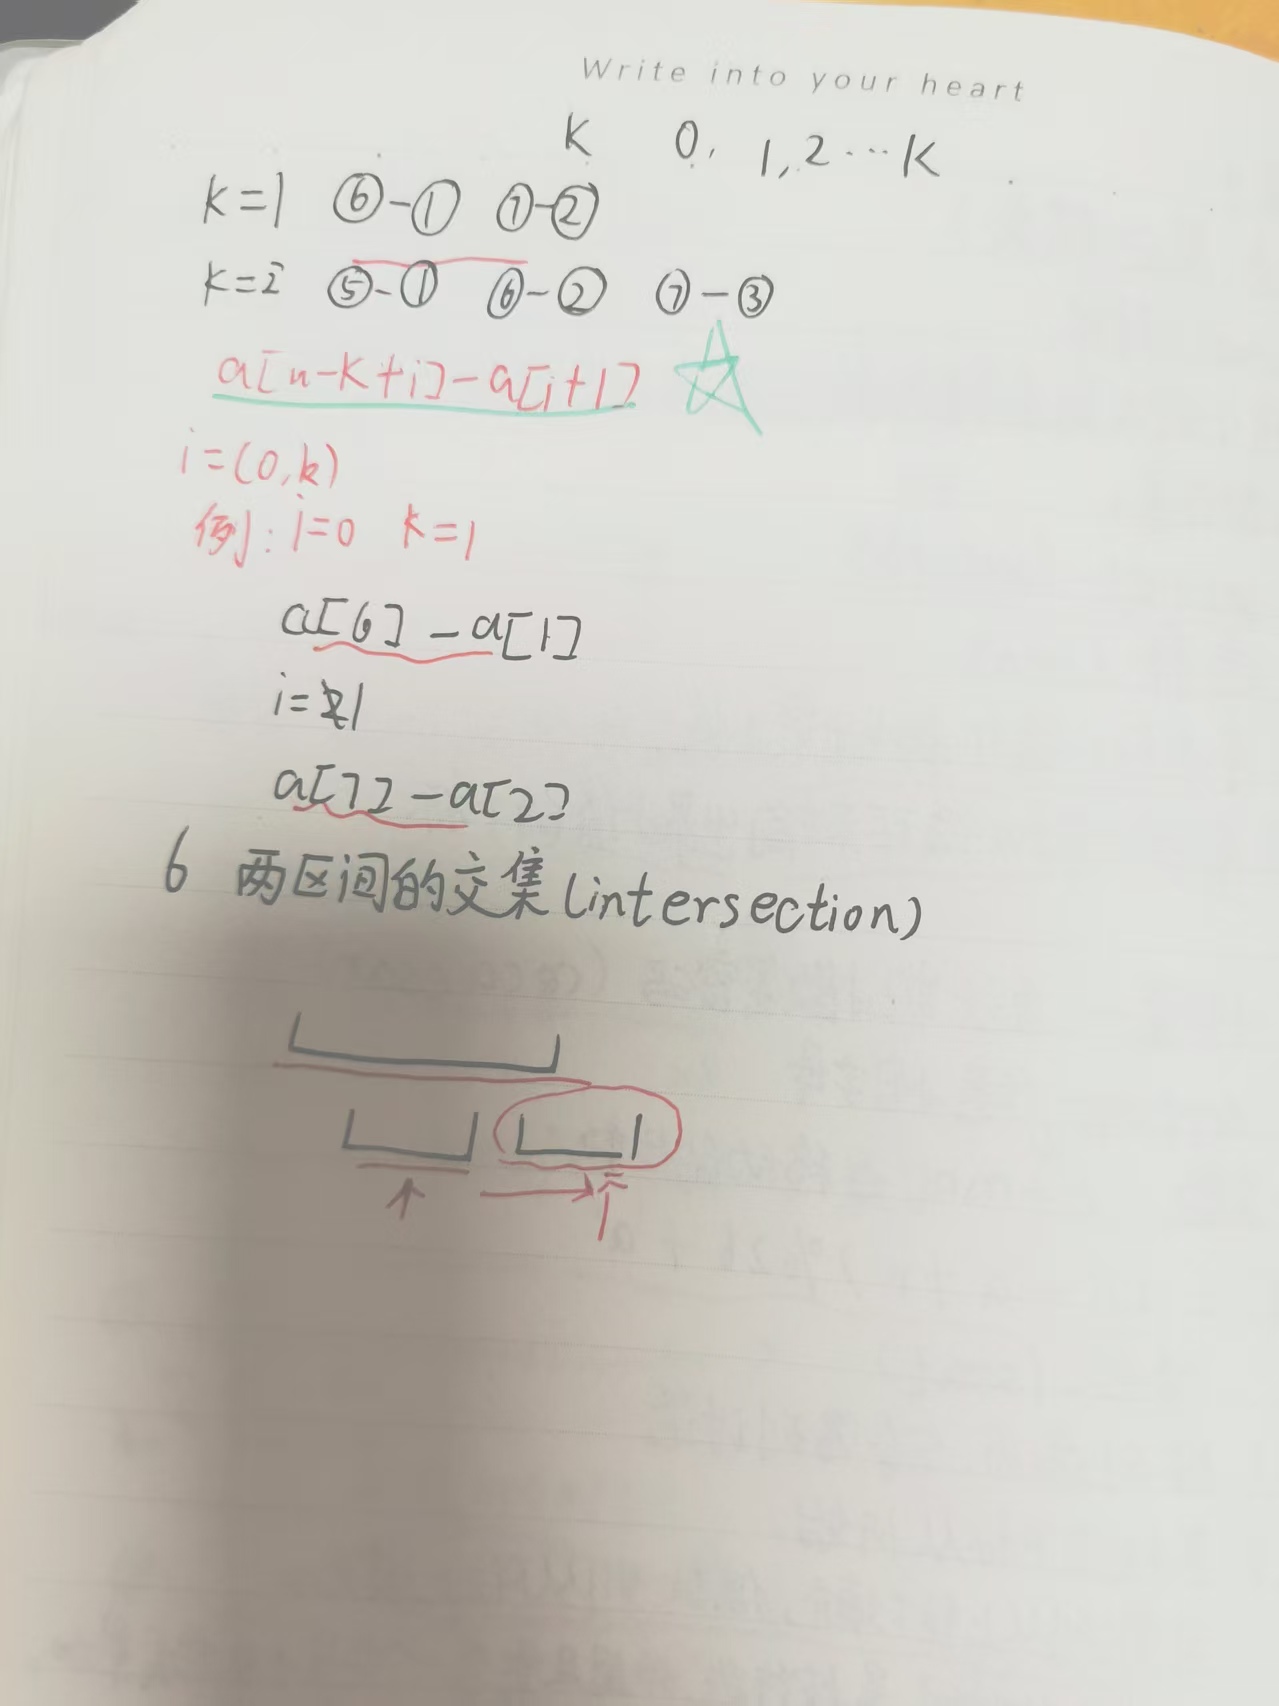 Write into your heart
K 0, 1,2...K
K=1 ⑥-① ⑦-②
K=2 ⑤-① ⑥-② ⑦-③
a[n-K+i]-a[i+1]
i=(0,k)
例: i=0 K=1
a[6]-a[1]
i=1
a[7]-a[2]
6 两区间的交集(intersection)